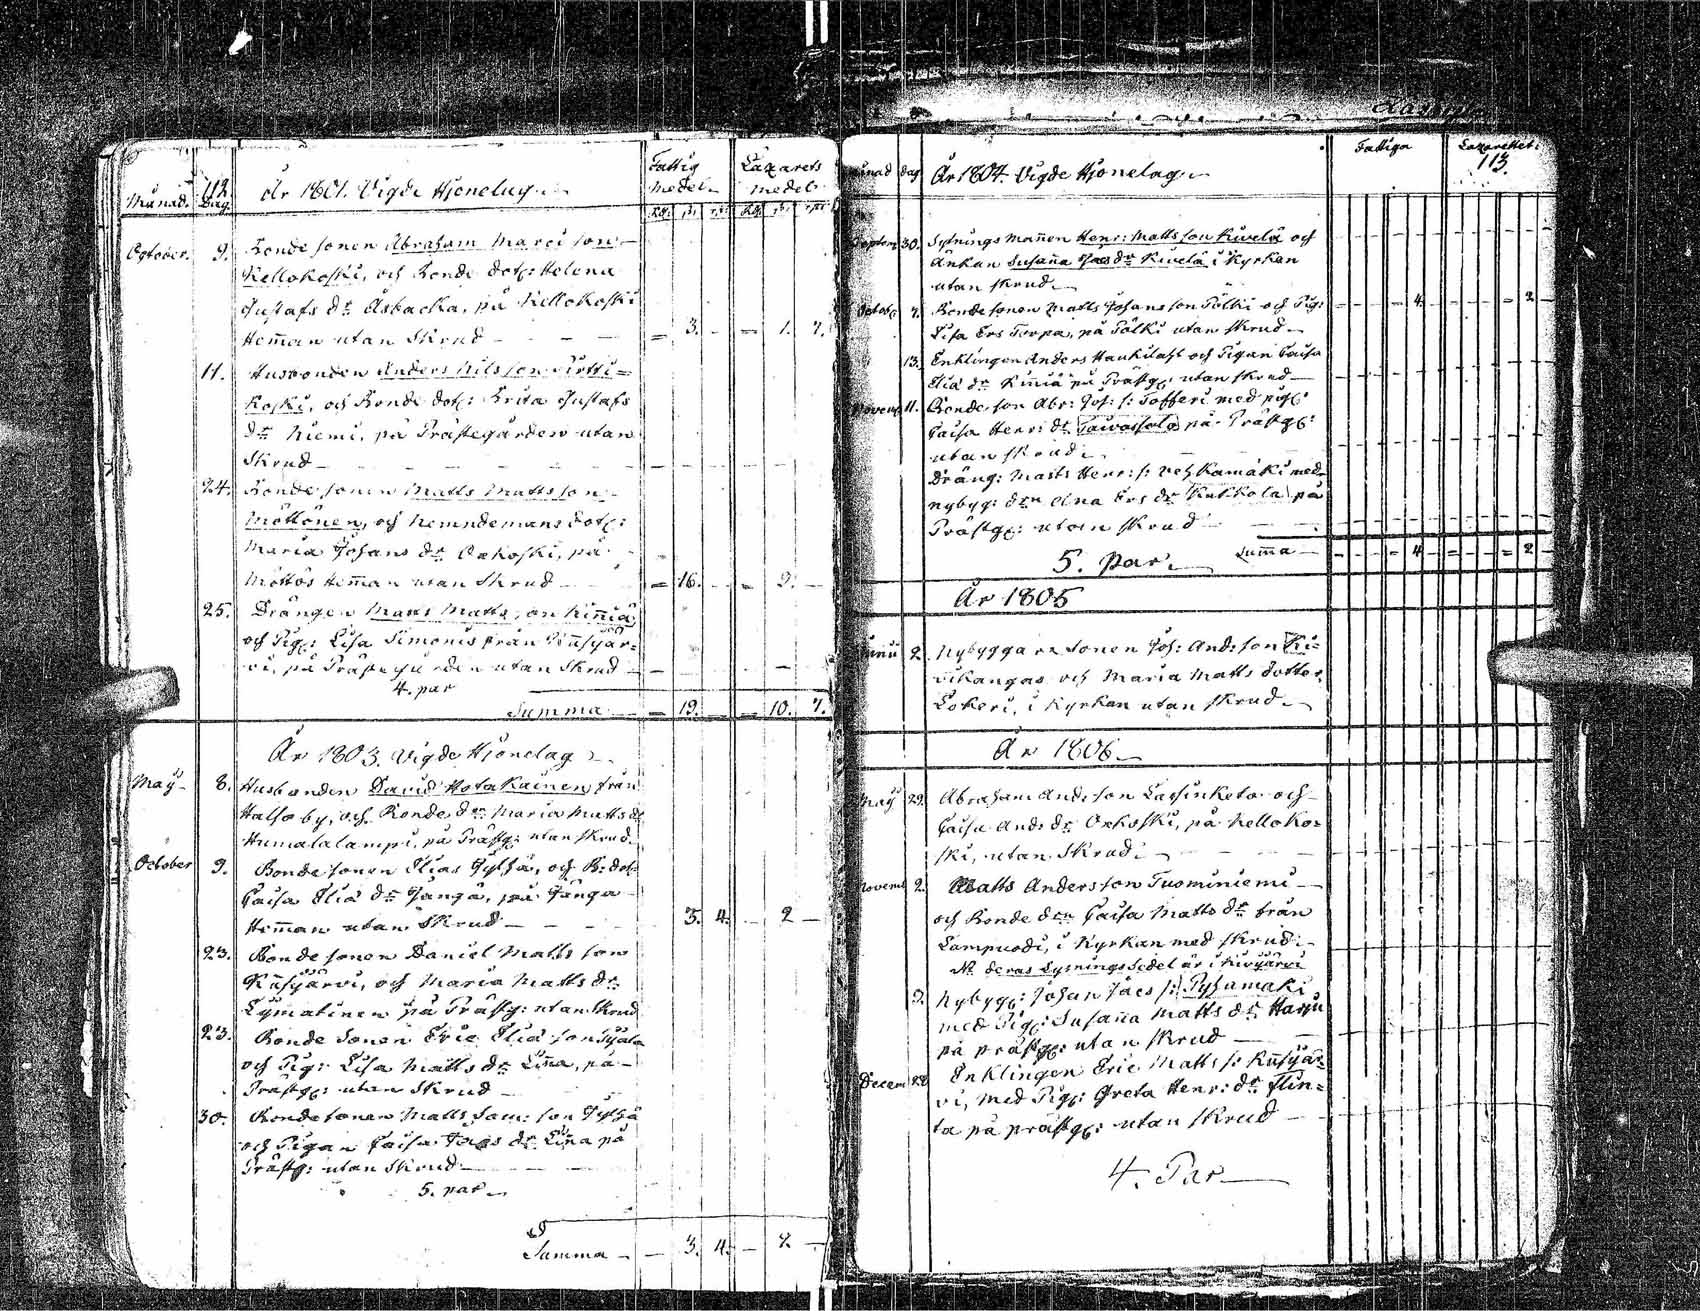 112
Månad. Dag. År 1801. Vigde Hjonelag. Fattig medel. Lazarets medel.
October. 9. Bonde sonen Abraham Marci son
Kellokoski, och Bonde dotr: Helena
Gustafs dr Åsbacka, på Kellokoski
Hemman utan Skrud 3. 1. 7.
11. Husbonden Anders Nilsson Pirtti=
koski, och Bonde dotr: Brita Gustafs
dr Niemi, på Prästegården utan
Skrud
24. Bonde sonen Matts Mattsson
Möttönen, och Nemndemans dotr:
Maria Johans dr Oxkoski, på
Möttös Hemman utan Skrud 16. 9.
25. Drängen Matts Mattsson Kinniä
och Pig: Lisa Simonis från
vi, på Prästegården utan Skrud
4. par
Summa 19. 10. 7.
År 1803. Vigde Hjonelag
May 8. Husbonden David Hotakainen från
Halsoby, och Bonde dr Maria Matts dr
Humalalampi, på Prästg: utan Skrud.
October 9. Bonde sonen Elias Jylhä, och B: dotr
Caisa Eliä dr Jänga, på Jänga
Hemman utan Skrud 3. 4. 2
23. Bonde sonen Daniel Matts son
och Maria Matts dr
på Prästg: utan Skrud
23. Bonde Sonen Eric Eliä son
och Pig: Lisa Matts dr Linna, på
Prästg: utan Skrud
30. Bonde sonen Matts Sam: son Jylhä
och Pigan Caisa dr Linna på
Prästg: utan Skrud
5. par
Summa 3. 4. 2.
månad dag År 1804. Vigde Hjonelag. Fattiga Lazarettet: 113.
Septemb 30. Sytnings Mannen Henr: Mattsson Kivelä och
Änkan Susanna Jacs dr Kivelä i Kyrkan
utan Skrud.
Octobr 7. Bonde sonen Matts Johansson Pölki och Pig: 4. 2
Lisa Ers Torpa, på Pölki utan Skrud
13. Enklingen Anders Haukilaht och Pigan Caisa
Eliä dr Kinniä på Prästg: utan Skrud
Novemb 11. Bonde son Abr: Joh: s: Tofferi med pig:
Caisa Henr: dr på Prästg:
utan Skrud.
Dräng: Matts Henr: s: med
nybyg: drn Ana Ers dr Kukkola på
Prästg: utan Skrud
5. Par. Summa 4. 2.
År 1805
Junii 2. Nybyggare Sonen Joh: And: son Ki=
vikangas och Maria Matts dotter
Lokeri, i Kyrkan utan Skrud.
År 1806
May 29. Abraham And: son Lassinketo och
Caisa And: dr Oxkoski, på Kelloko=
ski, utan Skrud.
Novemb 2. Matts Andersson Tuominiemi
och Bonde drn Caisa Matts dr från
Lampuodi, i Kyrkan med Skrud.
Nb deras Lysnings Sedel är i Kivijärvi
9. Nybyg: Johan Jacs s: Pyhämäki
med Pig: Susanna Matts dr Harju
på prästg: utan Skrud
Decem 28 Enklingen Eric Matts s:
vi, med Pig: Greta Henr: dr Flin=
ta på prästg: utan Skrud
4. Par